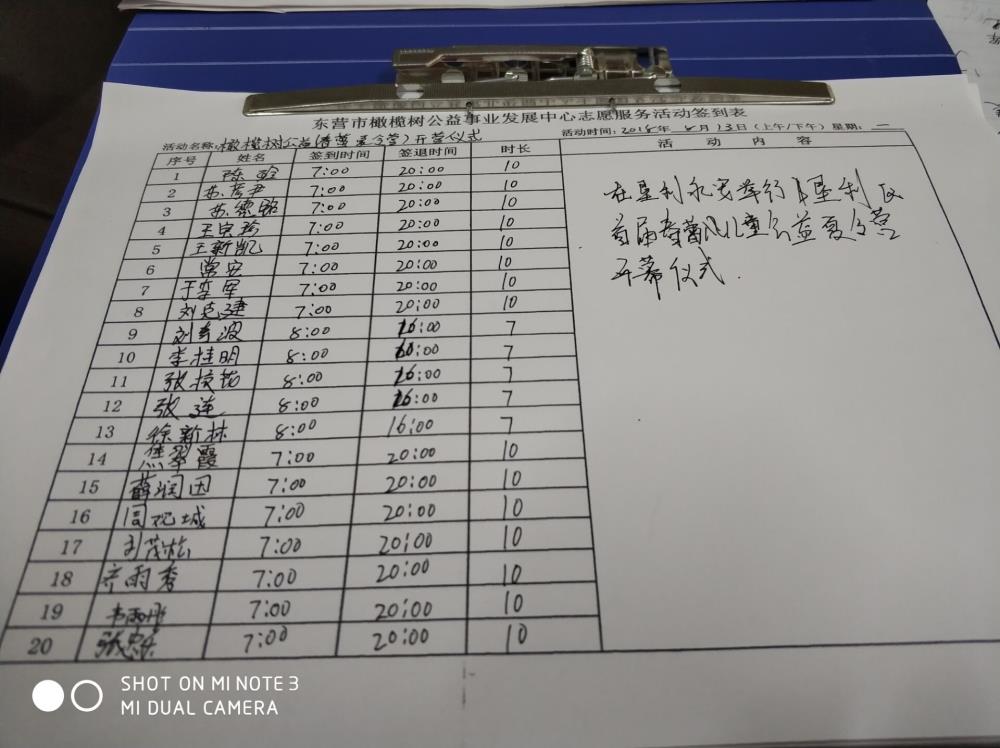 东营市橄榄树公益事业发展中心志愿服务活动签到表
活动名称:橄榄树公益(春蕾夏令营)开营仪式 活动时间:2018年8月13日(上午/下午) 星期:一
序号 姓名 签到时间 签退时间 时长 活动内容
1 7:00 20:00 10
2 苏彦尹 7:00 20:00 10
3 苏德铭 7:00 20:00 10
4 7:00 20:00 10
5 王新凯 7:00 20:00 10
6 常安 7:00 20:00 10
7 于李军 7:00 20:00 10
8 刘克建 7:00 20:00 10
9 刘春波 8:00 16:00 7
10 李桂明 8:00 16:00 7
11 8:00 16:00 7
12 张莲 8:00 16:00 7
13 徐新林 8:00 16:00 7
14 焦翠霞 7:00 20:00 10
15 薛润田 7:00 20:00 10
16 周观城 7:00 20:00 10
17 刘茂松 7:00 20:00 10
18 齐雨秀 7:00 20:00 10
19 7:00 20:00 10
20 7:00 20:00 10
在垦利永安举行了垦利区
首届春蕾儿童公益夏令营
开幕仪式.
SHOT ON MI NOTE 3
MI DUAL CAMERA